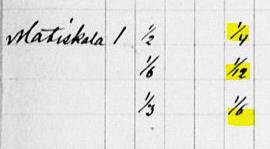 Matiskala 1 1/2 1/4
1/6 1/12
1/3 1/6